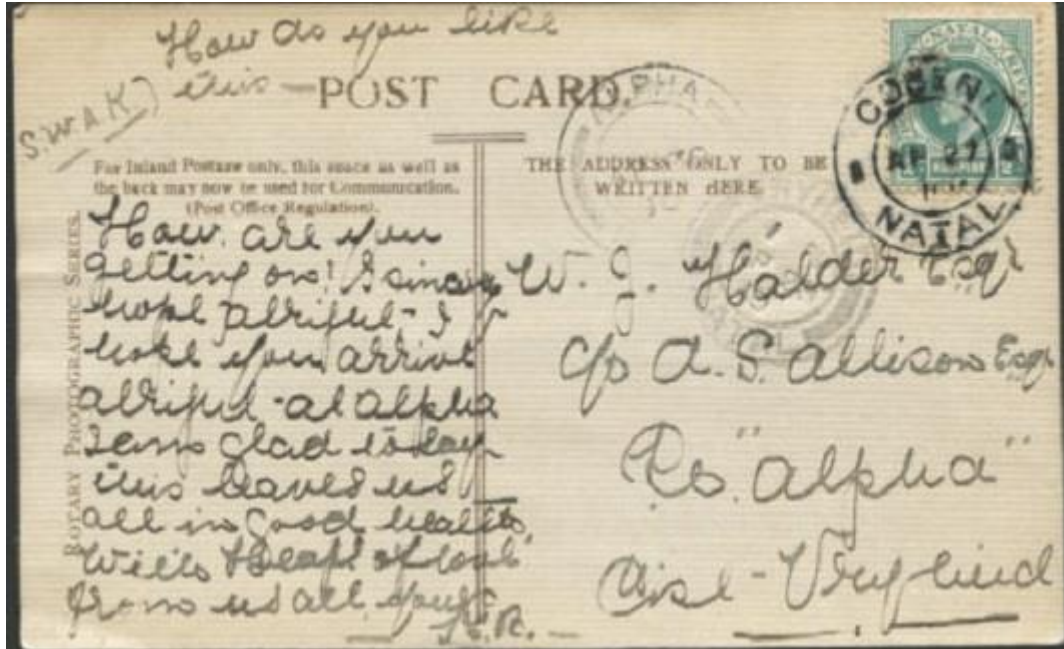 How do you like
this —
S.W.A.K)
POST CARD.
For Inland Postage only, this space as well as
the back may now be used for Communication.
(Post Office Regulation).
THE ADDRESS ONLY TO BE
WRITTEN HERE
ROTARY PHOTOGRAPHIC SERIES.
How are you
getting on! I
hope allright - I
hope you arrive
allright - at Alpha
I am glad to say
this leaves us
all in good health
With Heaps of love
from us all yours
W. J. Halder Esqr
c/o A. S. Allison Esqr
Po. "Alpha"
Dist - Vryheid
NATAL
AP 27
NATAL